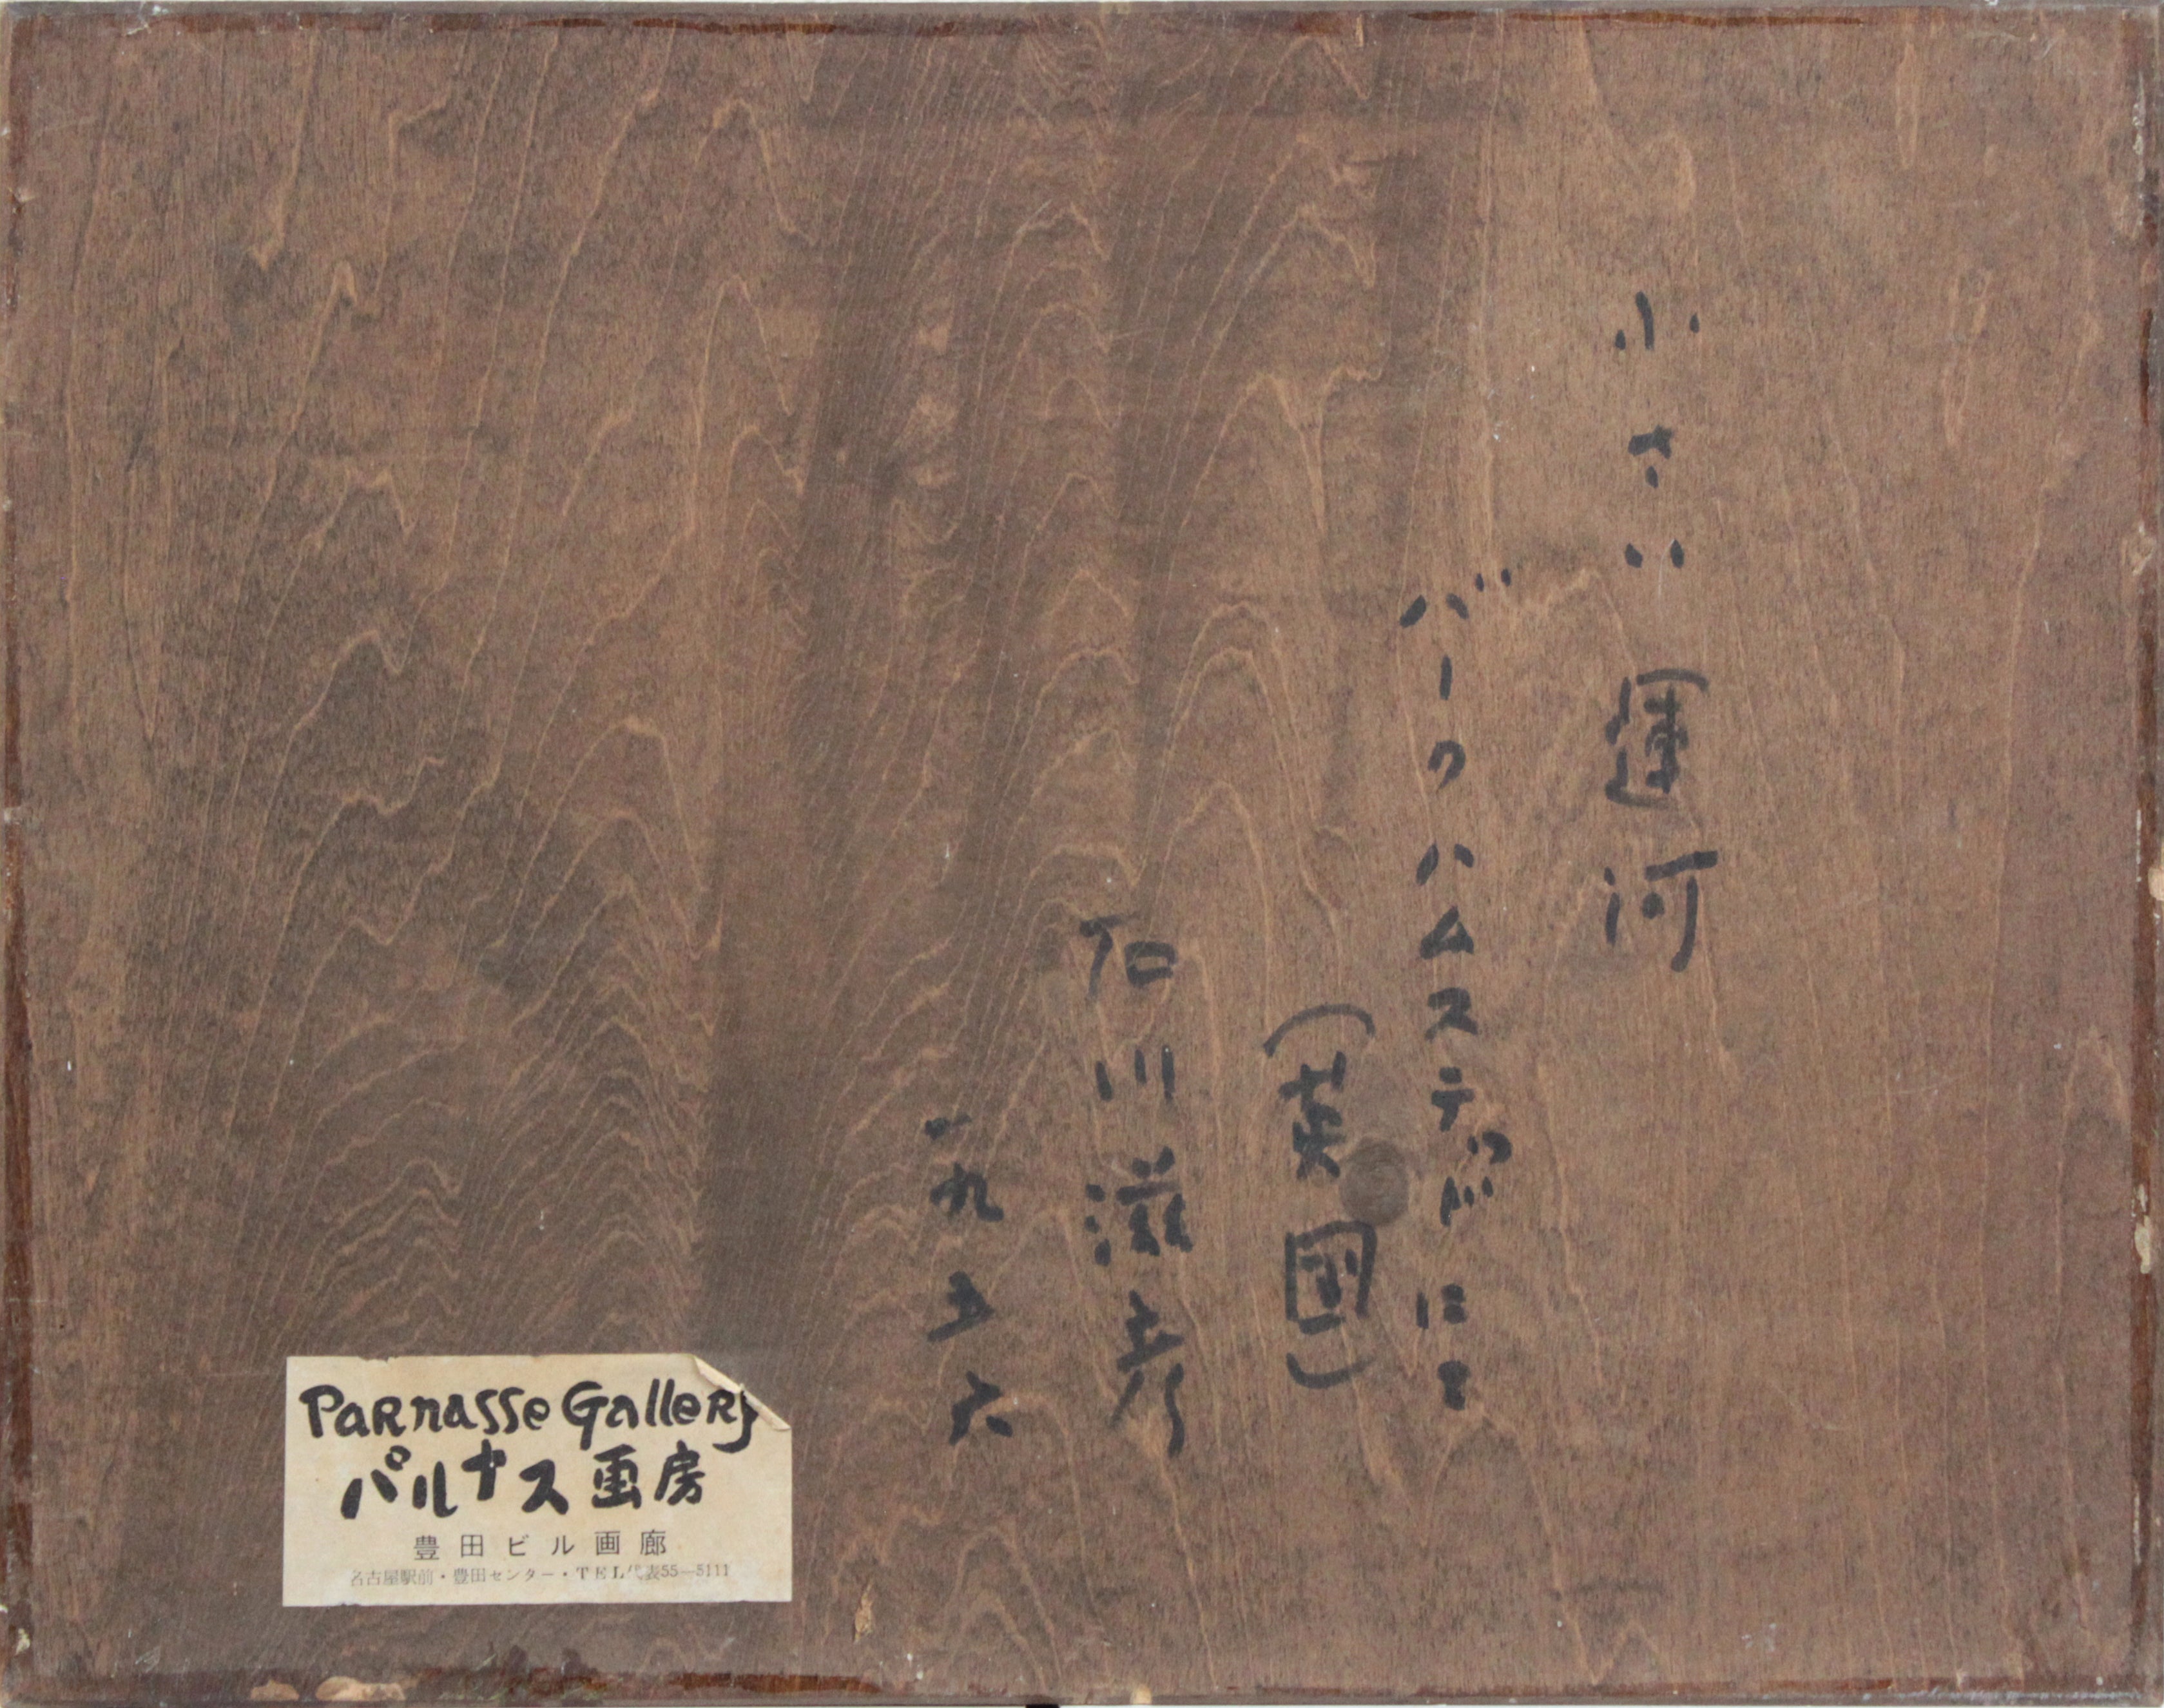 小さい運河
バークハムステッドにて
(英國)
石川滋彦
一九五六
Parnasse Gallery
パルナス画房
豊田ビル画廊
名古屋駅前・豊田センター・TEL代表55—5111